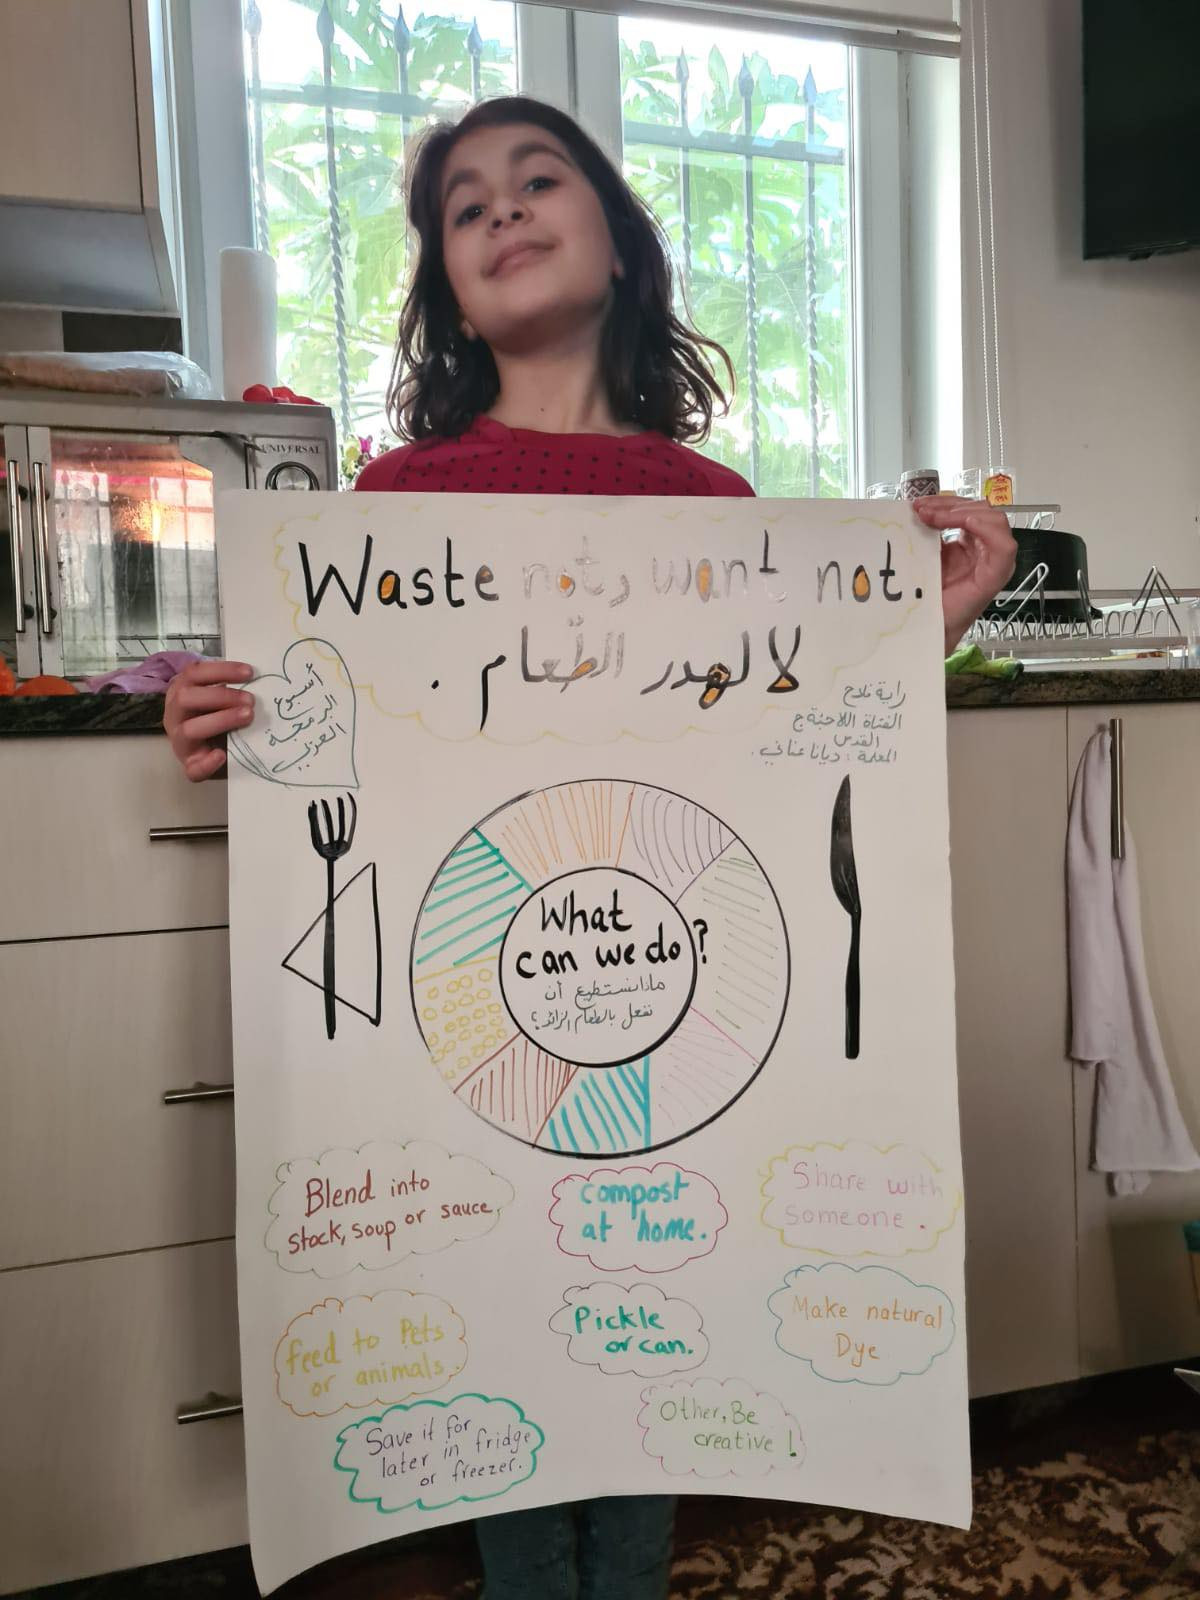 UNIVERSAL
Waste not, want not.
لا لهدر الطّعام .
أسبوع
البرمجة
العربي
راية فلاح
الفتاة اللاجئة ج
القدس
المعلمة : ديانا عناني .
What
can we do ?
ماذا نستطيع أن
نفعل بالطعام الزائد ؟
Blend into
stock, soup or sauce.
compost
at home.
Share with
someone .
feed to Pets
or animals.
Pickle
or can.
Make natural
Dye
Save it for
later in fridge
or freezer.
Other, Be
creative !